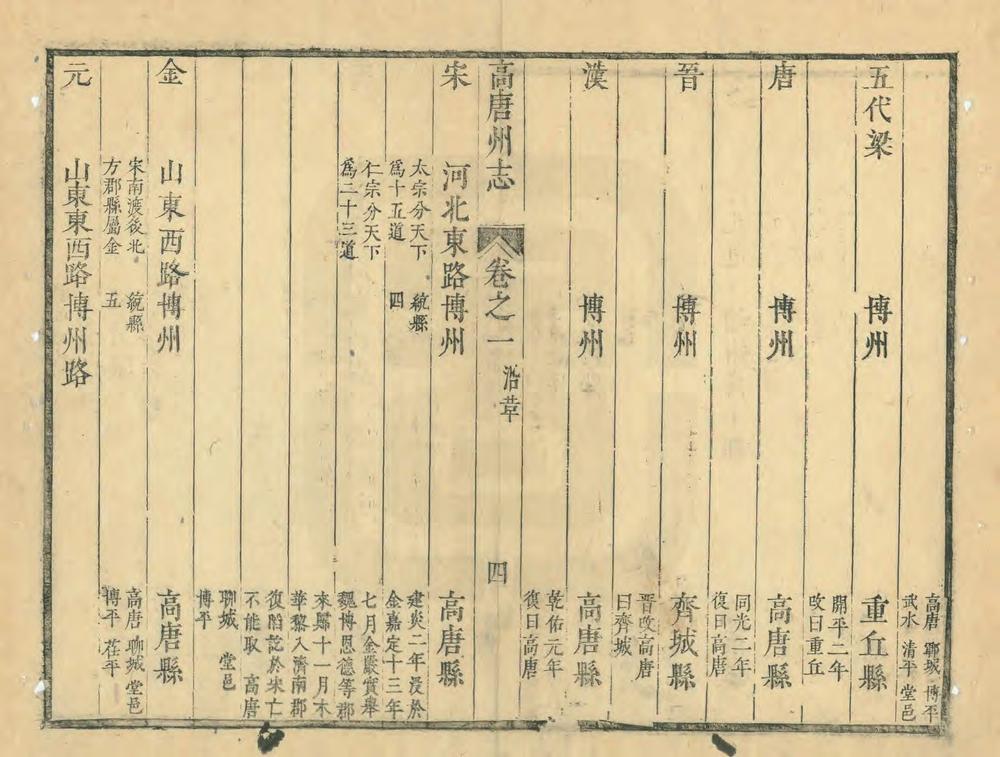 高唐 聊城 博平
武水 清平 堂邑
五代梁 博州 重丘縣
開平二年
改曰重丘
唐 博州 高唐縣
同光二年
復曰高唐
晉 博州 齊城縣
晉改高唐
曰齊城
漢 博州 高唐縣
乾佑元年
復曰高唐
高唐州志 卷之一 沿革 四
宋 河北東路博州 高唐縣
太宗分天下 統縣 建炎二年沒於
為十五道 四 金嘉定十三年
仁宗分天下 七月金嚴實舉
為二十三道 魏博恩德等郡
來歸十一月木
華黎入濟南郡
復陷訖於宋亡
不能取 高唐
聊城 堂邑
博平
金 山東西路博州 高唐縣
宋南渡後北 統縣 高唐 聊城 堂邑
方郡縣屬金 五 博平 茌平
元 山東東西路博州路